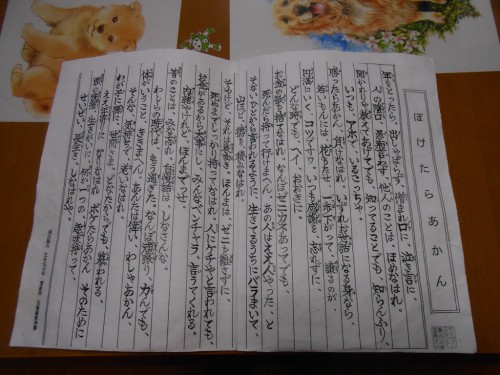 ぼけたらあかん
年をとったら、出しゃばらず、憎まれ口に、泣き言に、
人の陰口 愚痴言わず 他人のことは ほめなはれ。
聞かれりゃ 教えてあげてても、知ってることでも、知らんふり、
いつでも アホで いるこっちゃ。
勝ったらあかん、負けなはれ、いずれお世話になる身なら、
若いもんには 花もたせ、一歩下がって 譲るのが、
円満にいく コツですわ、いつも感謝を、忘れずに、
どんな時でも ヘイ おおきに。
お金の欲を 捨てなはれ、なんぼゼニカネ あってでも、
死んだら持って行けまへん、あの人は ええ人やった、と
そないひとから言われるように 生きてるうちにバラまいて、
山ほど、徳を 積みなはれ。
そやけど、それは表むき、ほんまは ゼニを離さずに、
死ぬまで しっかり 持ってなはれ、人にケチやと言われても、
お金があるから大事にし、みんな ベンチャラ 言うてくれる。
内緒やけれど、ほんまでっせ。
昔のことは みな忘れ、自慢話は しなはんな、
わしらの時代は、もう過ぎた、なんぼ頑張り 力んでも、
体がいうこと、ききまへん、あんたは偉い、わしゃあかん、
そんな 気持ちで 老いなはれ。
わが子に孫に、世間さま、どなたからでも、慕われる、
ええ年寄りに なりなはれ ボケたらあかん そのために
頭の洗濯 生きがいに、何か一つの 趣味持って、
せいぜい 長生き しなはれや。